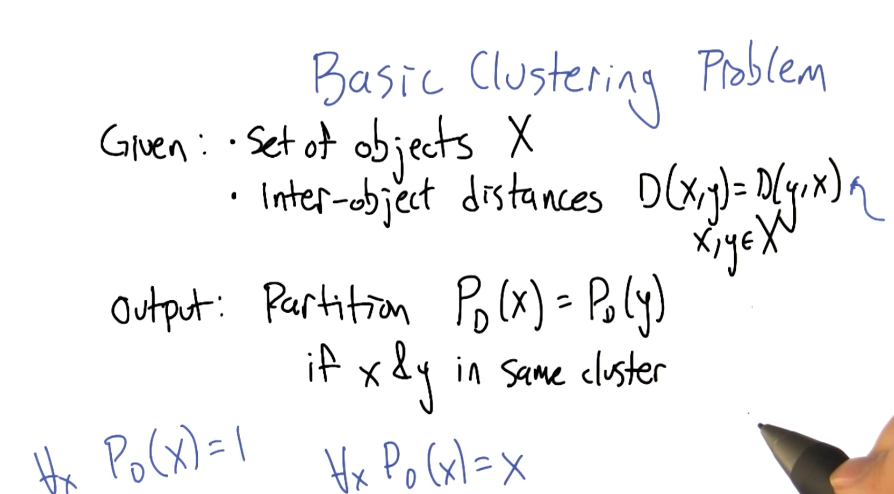 Basic Clustering Problem
Given: • Set of objects X
• Inter-object distances D(x,y) = D(y,x)
x,y ∈ X
Output: Partition P_D(x) = P_D(y)
if x & y in same cluster
∀x P_D(x) = 1 ∀x P_D(x) = x